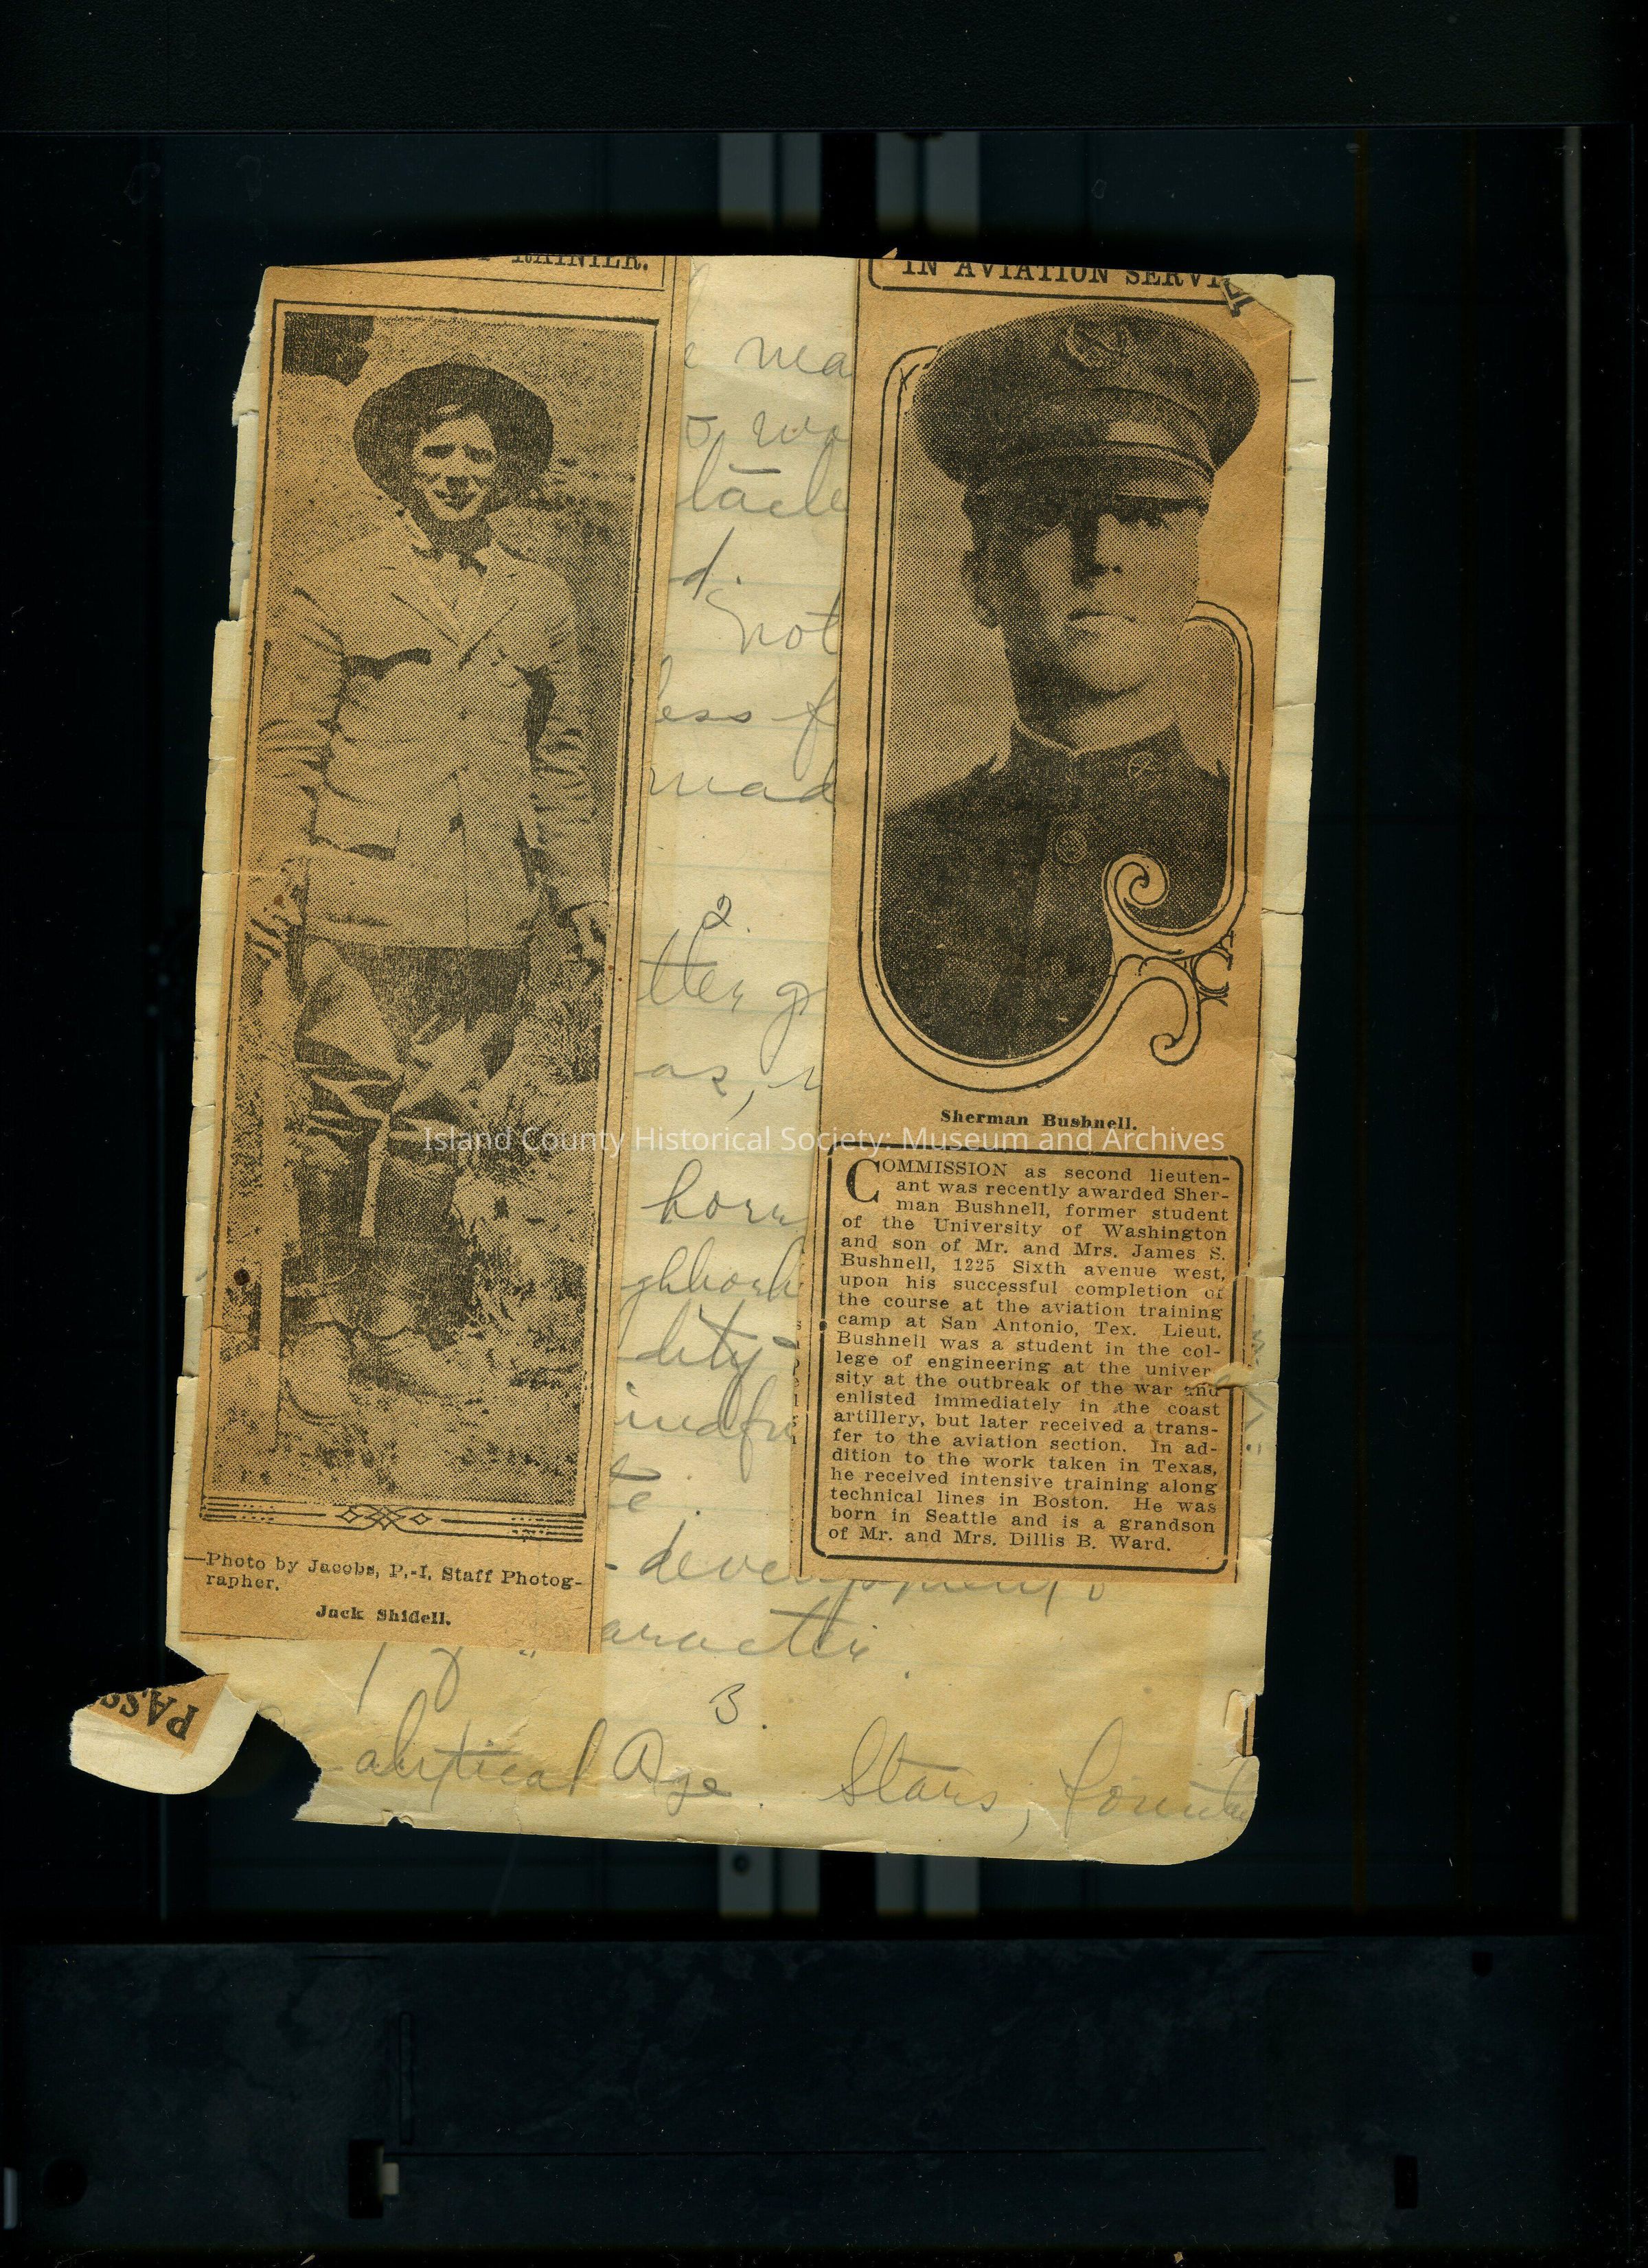 RAINIER.
—Photo by Jacobs, P.-I. Staff Photog-
rapher.
Jack Shidell.
IN AVIATION
Sherman Bushnell.
COMMISSION as second lieuten-
ant was recently awarded Sher-
man Bushnell, former student
of the University of Washington
and son of Mr. and Mrs. James S.
Bushnell, 1225 Sixth avenue west,
upon his successful completion of
the course at the aviation training
camp at San Antonio, Tex. Lieut.
Bushnell was a student in the col-
lege of engineering at the univer-
sity at the outbreak of the war and
enlisted immediately in the coast
artillery, but later received a trans-
fer to the aviation section. In ad-
dition to the work taken in Texas,
he received intensive training along
technical lines in Boston. He was
born in Seattle and is a grandson
of Mr. and Mrs. Dillis B. Ward.
not
2.
3.
Age. Stars,
Island County Historical Society: Museum and Archives